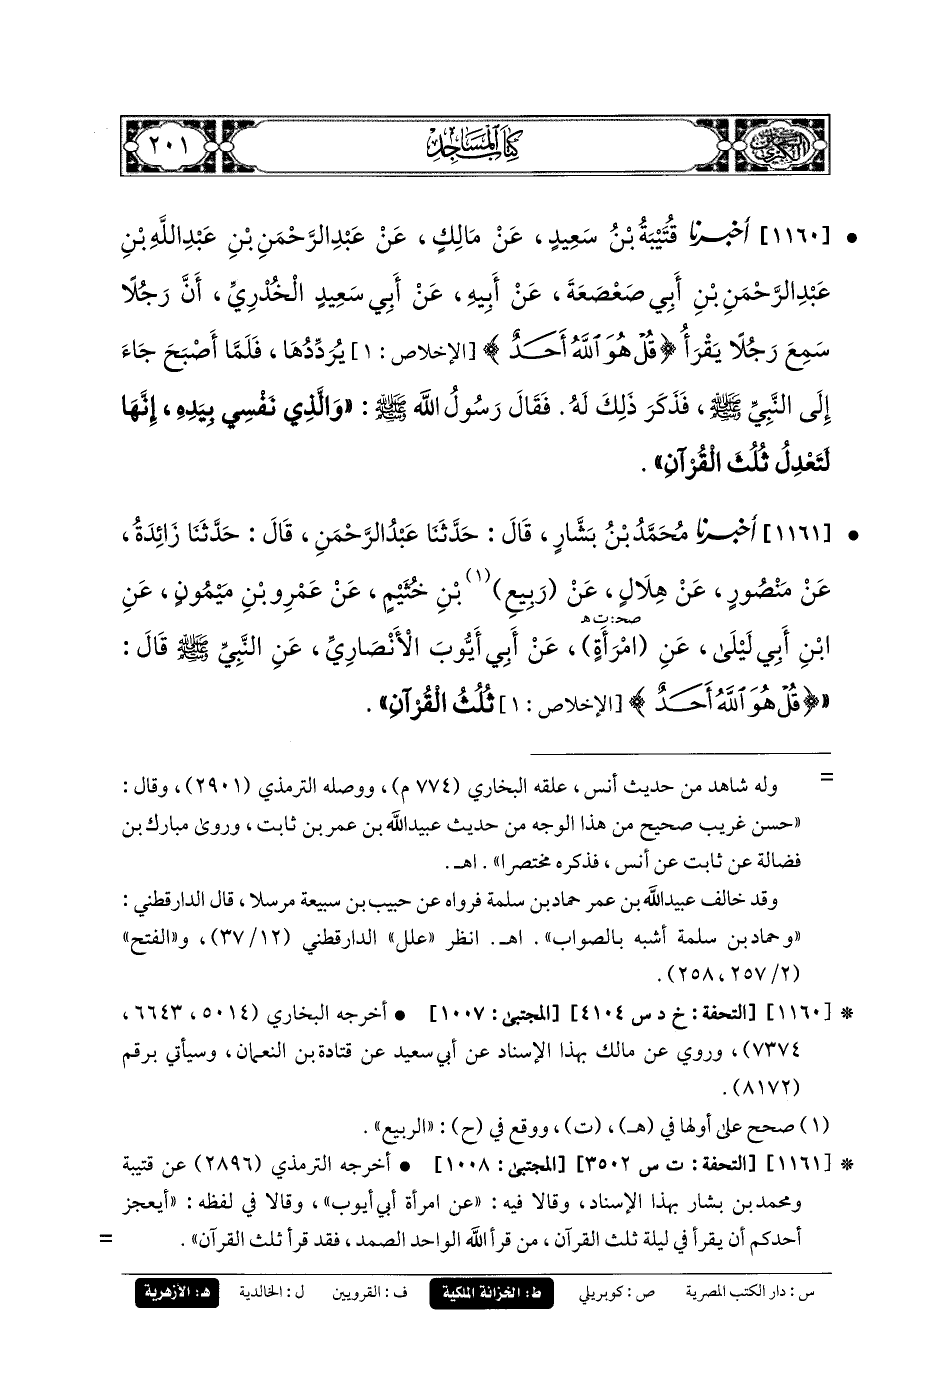 السنن الكبرى كتاب المساجد ٢٠١
• [١١٦٠] أخبرنا قُتَيْبَةُ بْنُ سَعِيدٍ، عَنْ مَالِكٍ، عَنْ عَبْدِالرَّحْمَنِ بْنِ عَبْدِاللَّهِ بْنِ
عَبْدِالرَّحْمَنِ بْنِ أَبِي صَعْصَعَةَ، عَنْ أَبِيهِ، عَنْ أَبِي سَعِيدٍ الْخُدْرِيِّ، أَنَّ رَجُلًا
سَمِعَ رَجُلًا يَقْرَأُ ﴿قُلْ هُوَ ٱللَّهُ أَحَدٌ﴾ [الإخلاص: ١] يُرَدِّدُهَا، فَلَمَّا أَصْبَحَ جَاءَ
إِلَى النَّبِيِّ ﷺ، فَذَكَرَ ذَلِكَ لَهُ. فَقَالَ رَسُولُ اللَّه ﷺ: «وَالَّذِي نَفْسِي بِيَدِهِ، إِنَّهَا
لَتَعْدِلُ ثُلُثَ الْقُرْآنِ».
• [١١٦١] أخبرنا مُحَمَّدُ بْنُ بَشَّارٍ، قَالَ: حَدَّثَنَا عَبْدُالرَّحْمَنِ، قَالَ: حَدَّثَنَا زَائِدَةُ،
عَنْ مَنْصُورٍ، عَنْ هِلَالٍ، عَنْ (رَبِيعِ)(١) بْنِ خُثَيْمٍ، عَنْ عَمْرِو بْنِ مَيْمُونٍ، عَنِ
صحـ: ت هـ
ابْنِ أَبِي لَيْلَى، عَنِ (امْرَأَةٍ)، عَنْ أَبِي أَيُّوبَ الْأَنْصَارِيِّ، عَنِ النَّبِيِّ ﷺ قَالَ:
«﴿قُلْ هُوَ ٱللَّهُ أَحَدٌ﴾ [الإخلاص: ١] ثُلُثُ الْقُرْآنِ».
= وله شاهد من حديث أنس، علقه البخاري (٧٧٤ م)، ووصله الترمذي (٢٩٠١)، وقال:
«حسن غريب صحيح من هذا الوجه من حديث عبيداللَّه بن عمر بن ثابت، وروى مبارك بن
فضالة عن ثابت عن أنس، فذكره مختصرا». اهـ.
وقد خالف عبيداللَّه بن عمر حماد بن سلمة فرواه عن حبيب بن سبيعة مرسلا، قال الدارقطني:
«وحماد بن سلمة أشبه بالصواب». اهـ. انظر «علل» الدارقطني (١٢/ ٣٧)، و«الفتح»
(٢/ ٢٥٧، ٢٥٨).
* [١١٦٠] [التحفة: خ د س ٤١٠٤] [المجتبى: ١٠٠٧] • أخرجه البخاري (٥٠١٤، ٦٦٤٣،
٧٣٧٤)، وروي عن مالك بهذا الإسناد عن أبي سعيد عن قتادة بن النعمان، وسيأتي برقم
(٨١٧٢).
(١) صحح على أولها في (هـ)، (ت)، ووقع في (ح): «الربيع».
* [١١٦١] [التحفة: ت س ٣٥٠٢] [المجتبى: ١٠٠٨] • أخرجه الترمذي (٢٨٩٦) عن قتيبة
ومحمد بن بشار بهذا الإسناد، وقالا فيه: «عن امرأة أبي أيوب»، وقالا في لفظه: «أيعجز
أحدكم أن يقرأ في ليلة ثلث القرآن، من قرأ اللَّه الواحد الصمد، فقد قرأ ثلث القرآن». =
س: دار الكتب المصرية ص: كوبريلي ط: الخزانة الملكية ف: القرويين ل: الخالدية هـ: الأزهرية